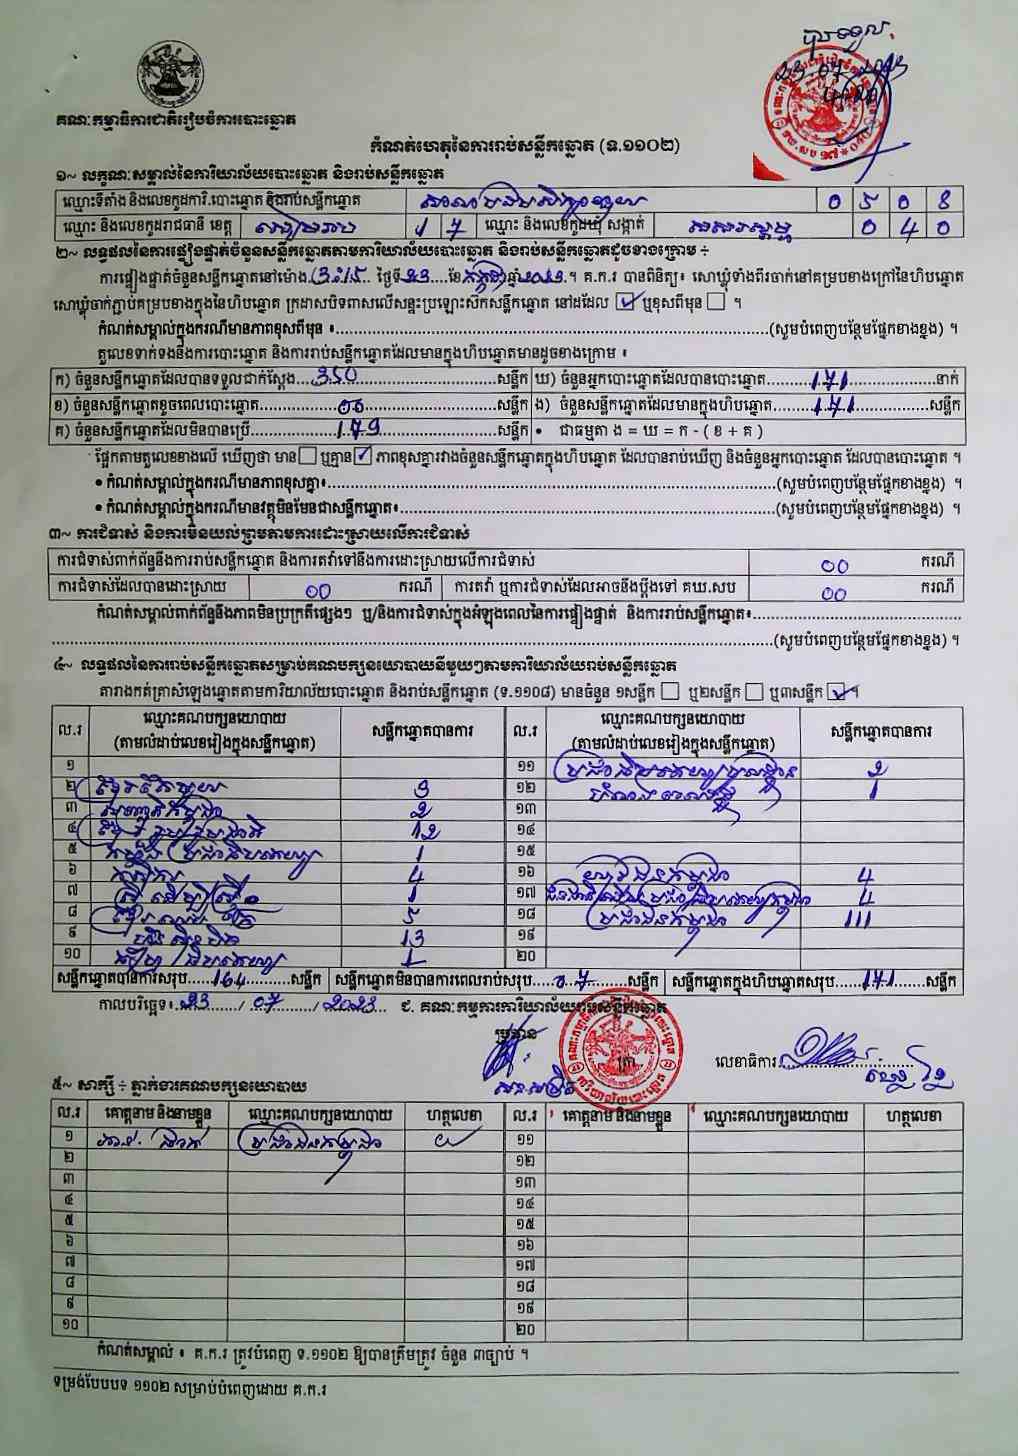 បានទទួល
23.07.2023
គណៈកម្មាធិការជាតិរៀបចំការបោះឆ្នោត
កំណត់ហេតុនៃការរាប់សន្លឹកឆ្នោត (ទ.១១០២)
១~ លក្ខណៈសម្គាល់នៃការិយាល័យបោះឆ្នោត និងរាប់សន្លឹកឆ្នោត
ឈ្មោះទីតាំង និងលេខកូដការិ.បោះឆ្នោត និងរាប់សន្លឹកឆ្នោត សាលាបឋមសិក្សា 0 5 0 8
ឈ្មោះ និងលេខកូដរាជធានី ខេត្ត សៀមរាប 1 7 ឈ្មោះ និងលេខកូដឃុំ សង្កាត់ សសរស្តម្ភ 0 4 0
២~ លទ្ធផលនៃការផ្ទៀងផ្ទាត់ចំនួនសន្លឹកឆ្នោតតាមការិយាល័យបោះឆ្នោត និងរាប់សន្លឹកឆ្នោតដូចខាងក្រោម ÷
ការផ្ទៀងផ្ទាត់ចំនួនសន្លឹកឆ្នោតនៅម៉ោង 3:15 ថ្ងៃទី 23 ខែ កក្កដា ឆ្នាំ 2023 ។ គ.ក.រ បានពិនិត្យ៖ សោឃ្លុំទាំងពីរចាក់នៅគម្របខាងក្រៅនៃហិបឆ្នោត
សោឃ្លុំចាក់ភ្ជាប់គម្របខាងក្នុងនៃហិបឆ្នោត ក្រដាសបិទពាសលើសន្ទះប្រឡោះសឹកសន្លឹកឆ្នោត នៅដដែល ☑ ឬខុសពីមុន ☐ ។
កំណត់សម្គាល់ក្នុងករណីមានភាពខុសពីមុន ៖ (សូមបំពេញបន្ថែមផ្នែកខាងខ្នង) ។
តួលេខទាក់ទងនឹងការបោះឆ្នោត និងការរាប់សន្លឹកឆ្នោតដែលមានក្នុងហិបឆ្នោតមានដូចខាងក្រោម ៖
ក) ចំនួនសន្លឹកឆ្នោតដែលបានទទួលជាក់ស្តែង 350 សន្លឹក ឃ) ចំនួនអ្នកបោះឆ្នោតដែលបានបោះឆ្នោត 171 នាក់
ខ) ចំនួនសន្លឹកឆ្នោតខូចពេលបោះឆ្នោត 00 សន្លឹក ង) ចំនួនសន្លឹកឆ្នោតដែលមានក្នុងហិបឆ្នោត 171 សន្លឹក
គ) ចំនួនសន្លឹកឆ្នោតដែលមិនបានប្រើ 179 សន្លឹក • ជាធម្មតា ង = ឃ = ក - ( ខ + គ )
ផ្អែកតាមតួលេខខាងលើ ឃើញថា មាន ☐ ឬគ្មាន ☑ ភាពខុសគ្នារវាងចំនួនសន្លឹកឆ្នោតក្នុងហិបឆ្នោត ដែលបានរាប់ឃើញ និងចំនួនអ្នកបោះឆ្នោត ដែលបានបោះឆ្នោត ។
• កំណត់សម្គាល់ក្នុងករណីមានភាពខុសគ្នា៖ (សូមបំពេញបន្ថែមផ្នែកខាងខ្នង) ។
• កំណត់សម្គាល់ក្នុងករណីមានវត្ថុមិនមែនជាសន្លឹកឆ្នោត៖ (សូមបំពេញបន្ថែមផ្នែកខាងខ្នង) ។
៣~ ការជំទាស់ និងការមិនយល់ព្រមតាមការដោះស្រាយលើការជំទាស់
ការជំទាស់ពាក់ព័ន្ធនឹងការរាប់សន្លឹកឆ្នោត និងការតវ៉ាទៅនឹងការដោះស្រាយលើការជំទាស់ 00 ករណី
ការជំទាស់ដែលបានដោះស្រាយ 00 ករណី ការតវ៉ា ឬការជំទាស់ដែលអាចនឹងប្តឹងទៅ គឃ.សប 00 ករណី
កំណត់សម្គាល់ពាក់ព័ន្ធនឹងភាពមិនប្រក្រតីផ្សេងៗ ឬ/និងការជំទាស់ក្នុងអំឡុងពេលនៃការផ្ទៀងផ្ទាត់ និងការរាប់សន្លឹកឆ្នោត៖
(សូមបំពេញបន្ថែមផ្នែកខាងខ្នង) ។
៤~ លទ្ធផលនៃការរាប់សន្លឹកឆ្នោតសម្រាប់គណបក្សនយោបាយនីមួយៗតាមការិយាល័យរាប់សន្លឹកឆ្នោត
តារាងកត់ត្រាសំឡេងឆ្នោតតាមការិយាល័យបោះឆ្នោត និងរាប់សន្លឹកឆ្នោត (ទ.១១០៨) មានចំនួន ១សន្លឹក ☐ ឬ២សន្លឹក ☐ ឬ៣សន្លឹក ☑ ។
ល.រ ឈ្មោះគណបក្សនយោបាយ (តាមលំដាប់លេខរៀងក្នុងសន្លឹកឆ្នោត) សន្លឹកឆ្នោតបានការ ល.រ ឈ្មោះគណបក្សនយោបាយ (តាមលំដាប់លេខរៀងក្នុងសន្លឹកឆ្នោត) សន្លឹកឆ្នោតបានការ
១ ១១ ប្រជាធិបតេយ្យមូលដ្ឋាន 2
២ 3 ១២ 1
៣ 2 ១៣
៤ 12 ១៤
៥ កម្ពុជា 1 ១៥
៦ 4 ១៦ យុវជនកម្ពុជា 4
៧ 1 ១៧ 4
៨ 5 ១៨ ប្រជាជនកម្ពុជា 111
៩ 13 ១៩
១០ ធិបតេយ្យ 1 ២០
សន្លឹកឆ្នោតបានការសរុប 164 សន្លឹក សន្លឹកឆ្នោតមិនបានការពេលរាប់សរុប 07 សន្លឹក សន្លឹកឆ្នោតក្នុងហិបឆ្នោតសរុប 171 សន្លឹក
កាលបរិច្ឆេទ៖ 23 / 07 / 2023 ជ. គណៈកម្មការការិយាល័យរាប់សន្លឹកឆ្នោត
ប្រធាន ត្រា លេខាធិការ
៥~ សាក្សី ÷ ភ្នាក់ងារគណបក្សនយោបាយ
ល.រ គោត្តនាម និងនាមខ្លួន ឈ្មោះគណបក្សនយោបាយ ហត្ថលេខា ល.រ គោត្តនាម និងនាមខ្លួន ឈ្មោះគណបក្សនយោបាយ ហត្ថលេខា
១ ប្រជាជនកម្ពុជា ១១
២ ១២
៣ ១៣
៤ ១៤
៥ ១៥
៦ ១៦
៧ ១៧
៨ ១៨
៩ ១៩
១០ ២០
កំណត់សម្គាល់ ៖ គ.ក.រ ត្រូវបំពេញ ទ.១១០២ ឱ្យបានត្រឹមត្រូវ ចំនួន ៣ច្បាប់ ។
ទម្រង់បែបបទ ១១០២ សម្រាប់បំពេញដោយ គ.ក.រ